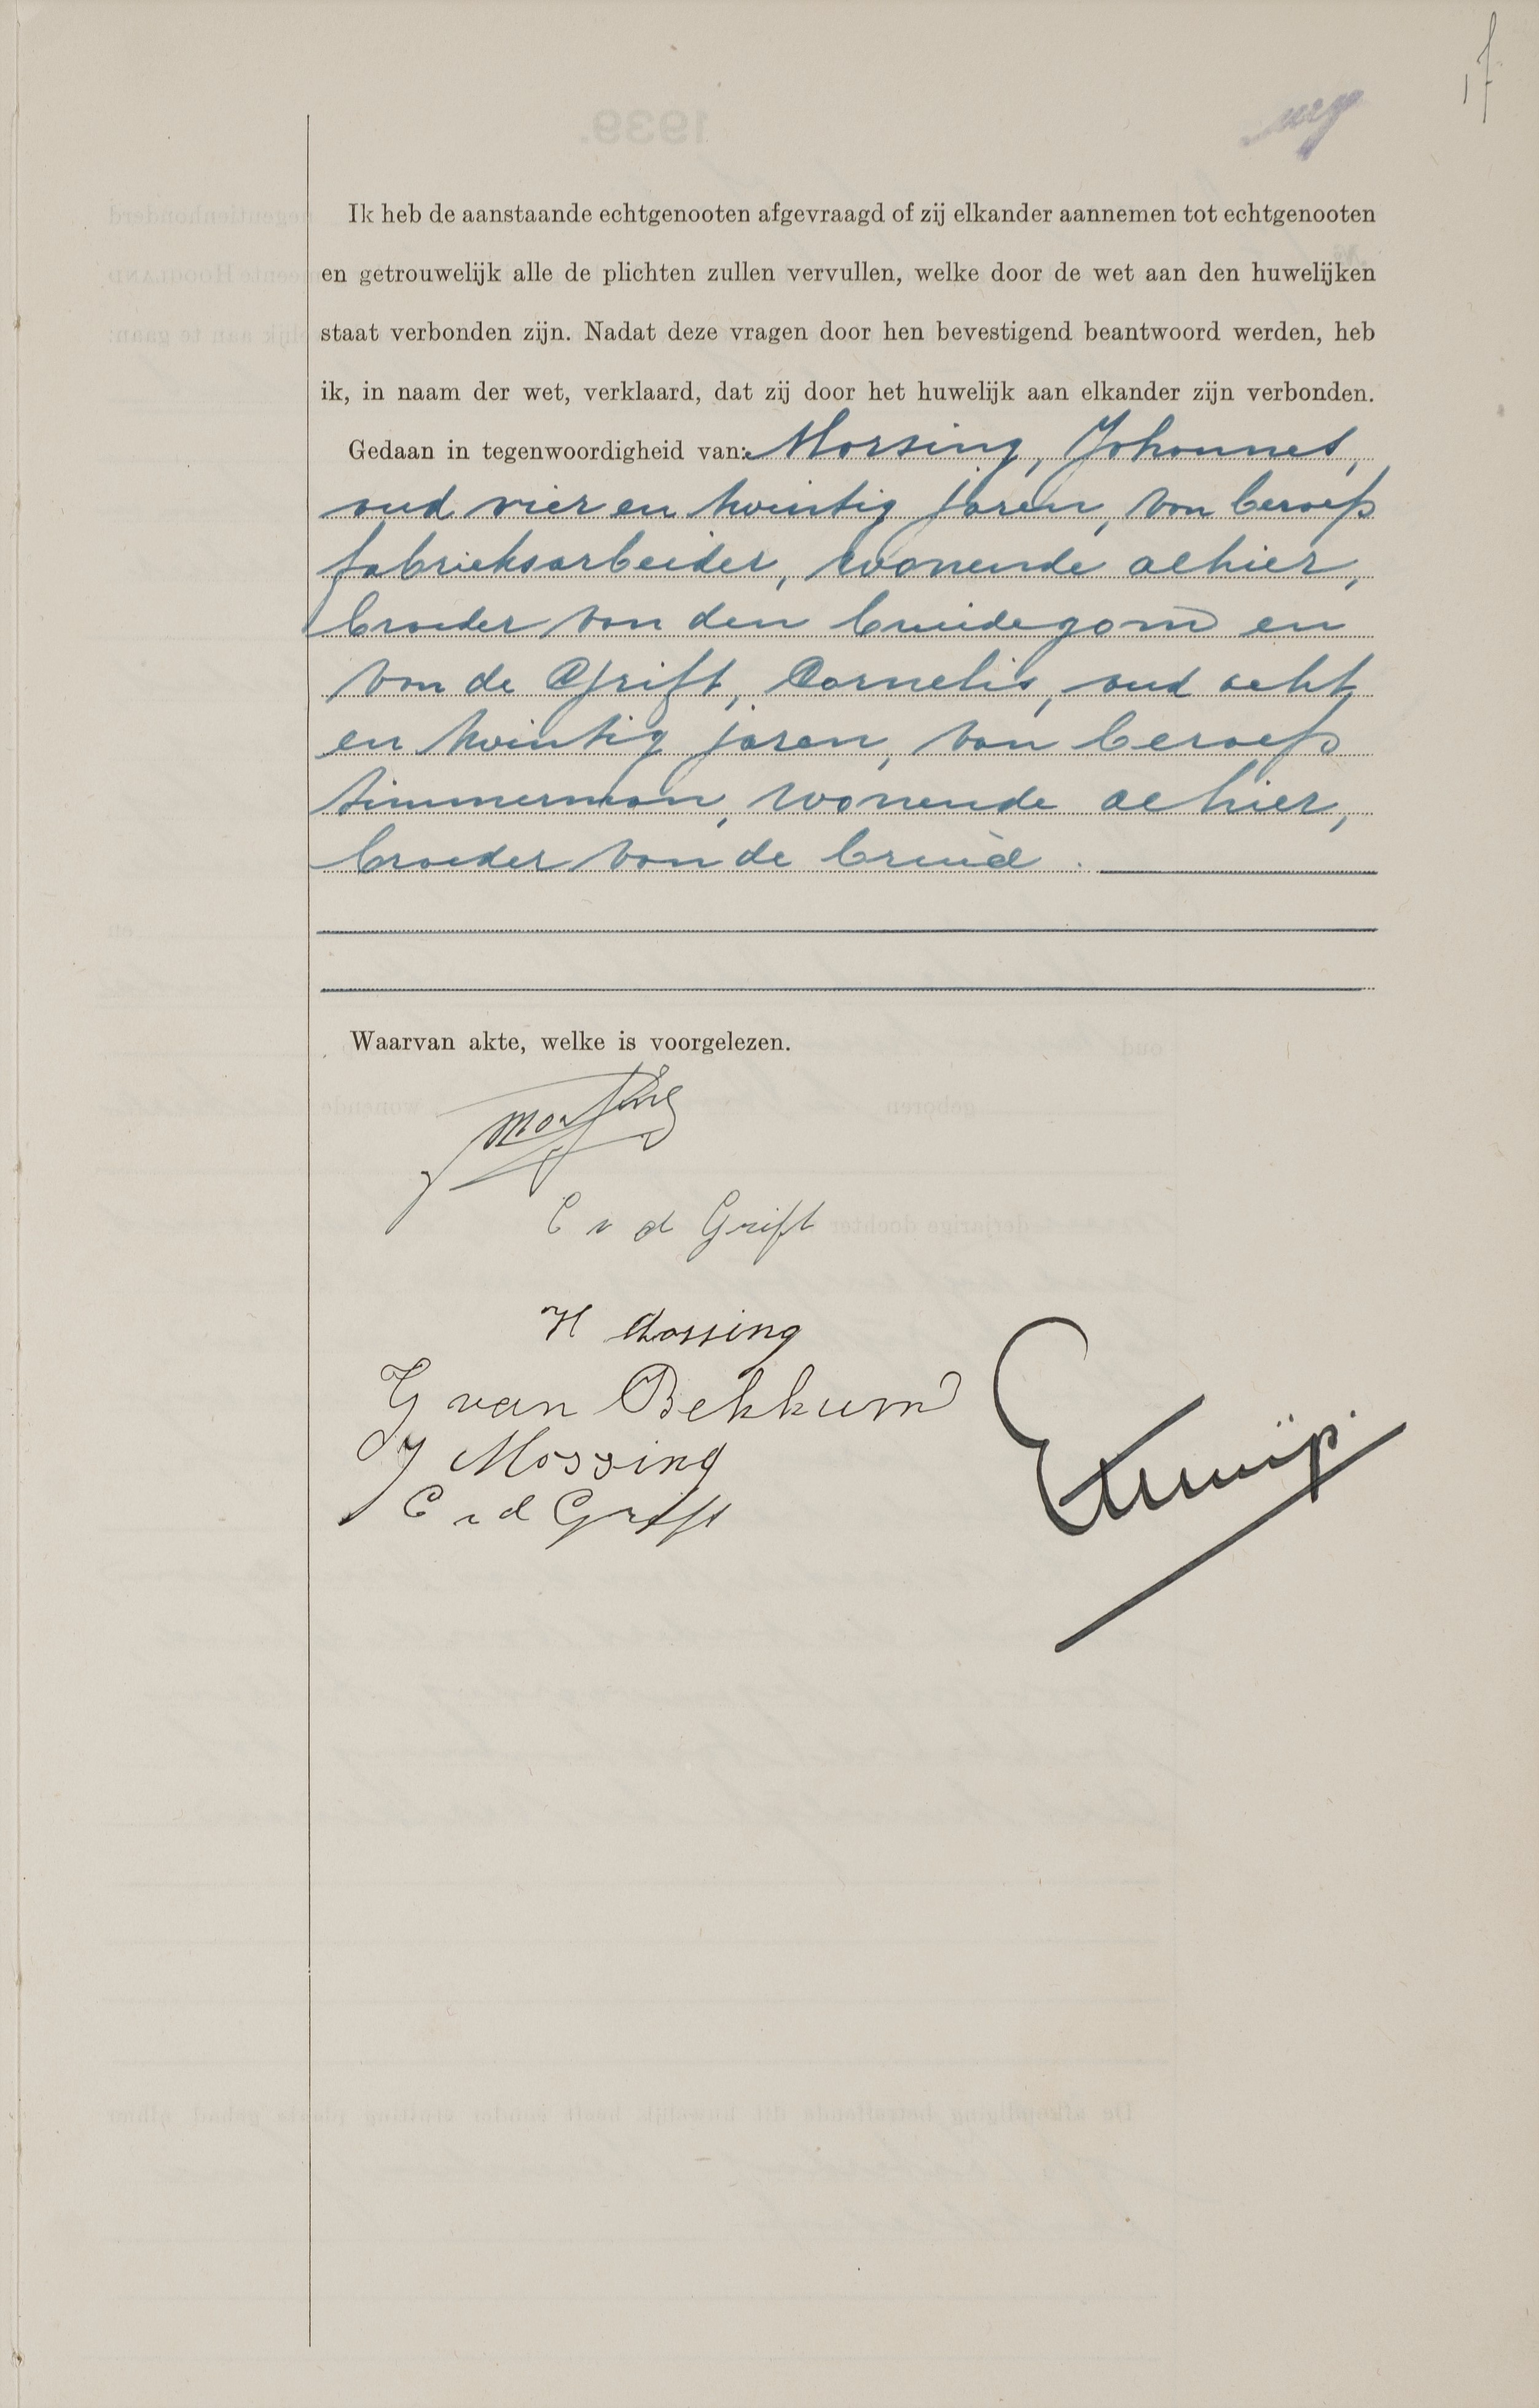 Ik heb de aanstaande echtgenooten afgevraagd of zij elkander aannemen tot echtgenooten
en getrouwelijk alle de plichten zullen vervullen, welke door de wet aan den huwelijken
staat verbonden zijn. Nadat deze vragen door hen bevestigend beantwoord werden, heb
ik, in naam der wet, verklaard, dat zij door het huwelijk aan elkander zijn verbonden.
Gedaan in tegenwoordigheid van: Morsing, Johannes,
oud vier en twintig jaren, van beroep
fabrieksarbeider, wonende alhier,
broeder van den bruidegom en
van de Grift, Cornelis, oud acht
en twintig jaren, van beroep
timmerman, wonende alhier,
broeder van de bruid.
Waarvan akte, welke is voorgelezen.
Morsing
C v d Grift
H Morsing
G van Bekkum
J Morsing
C v d Grift